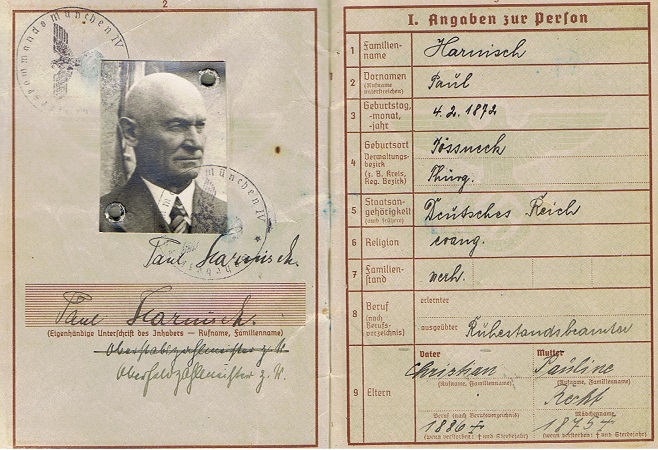 2
Wehrbezirkskommando München IV
Wehrbezirkskommando München IV
Paul Harnisch.
Paul Harnisch.
(Eigenhändige Unterschrift des Inhabers — Rufname, Familienname)
Oberstabszahlmeister z. V.
Oberfeldzahlmeister z. V.
I. Angaben zur Person
1 Familien-
name Harnisch
2 Vornamen
(Rufname
unterstreichen) Paul
3 Geburtstag,
-monat,
-jahr 4. 2. 1872
4 Geburtsort Pössneck
Verwaltungs-
bezirk
(z. B. Kreis,
Reg.-Bezirk) Thürg.
5 Staatsan-
gehörigkeit
(auch frühere) Deutsches Reich
6 Religion evang.
7 Familien-
stand verh.
8 Beruf
(nach
Berufs-
verzeichnis)
erlernter
ausgeübter Ruhestandsbeamter
9 Eltern
Vater Mutter
Christian Pauline
(Rufname, Familienname) (Rufname, Familienname)
Mädchenname
Beruf (nach Berufsverzeichnis)
1886 † 1875 †
(wenn verstorben: † und Sterbejahr) (wenn verstorben: † und Sterbejahr)